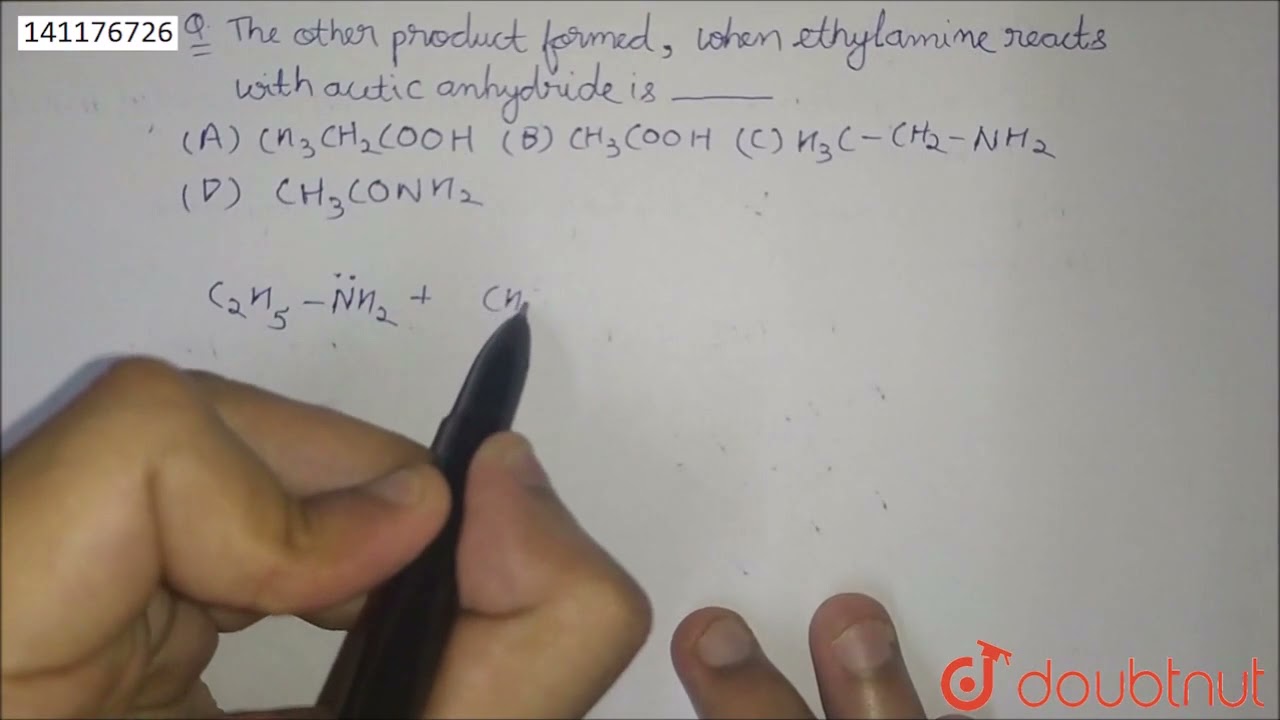 141176726 Q. The other product formed, when ethylamine reacts
with acetic anhydride is _____.
(A) CH3CH2COOH (B) CH3COOH (C) H3C-CH2-NH2
(D) CH3CONH2
C2H5-NH2 + CH
doubtnut